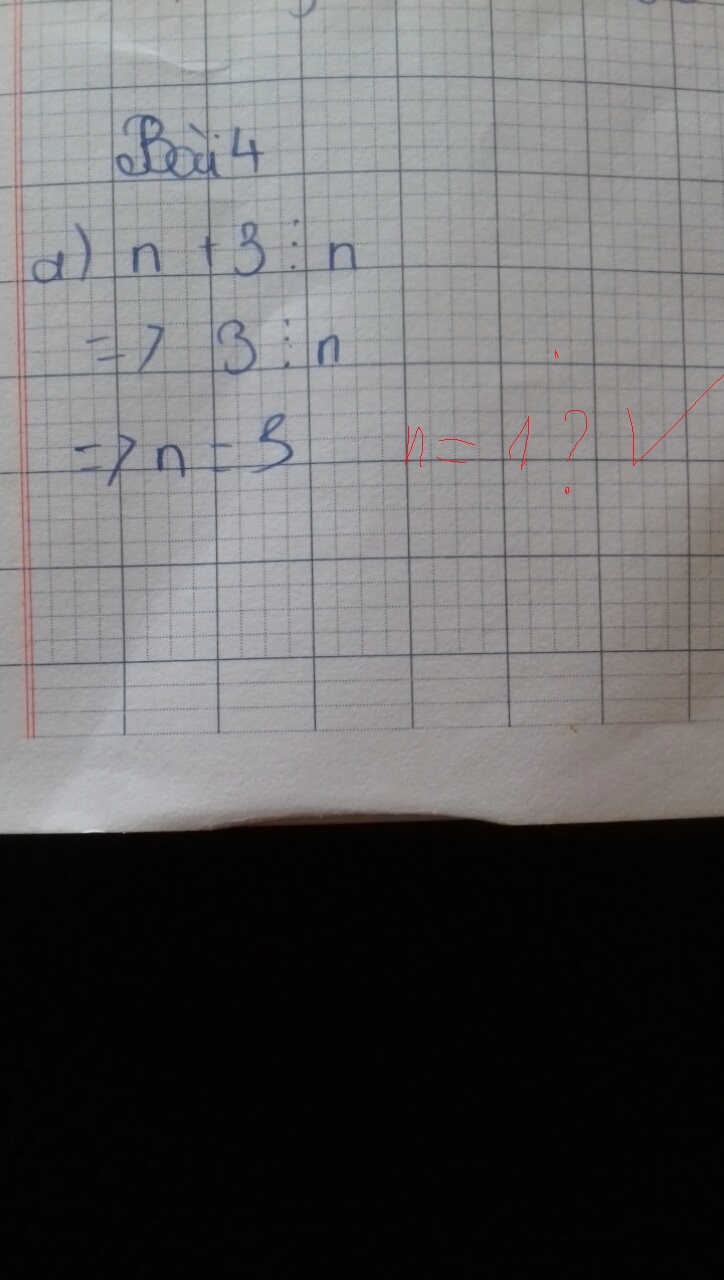 Bài 4
a) n + 3 ⋮ n
=> 3 ⋮ n
=> n = 3 n = 1 ? ✓